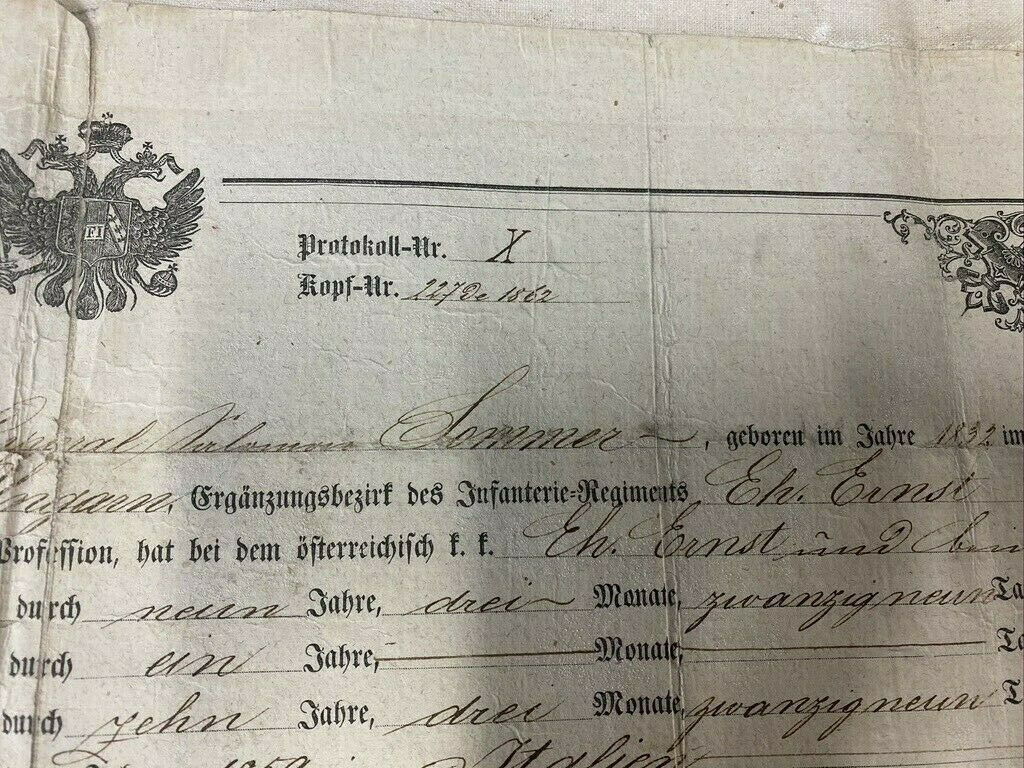 FI
Protokoll-Nr. X
Kopf-Nr. 227 de 1862
Salomon Sommer, geboren im Jahre 1832 im
Ungarn, Ergänzungsbezirk des Infanterie-Regiments Eh. Ernst
Profession, hat bei dem österreichisch k. k. Eh. Ernst und
durch neun Jahre, drei Monate, zwanzigneun Ta
durch ein Jahre, Monate, Ta
durch zehn Jahre, drei Monate, zwanzigneun T
Italien